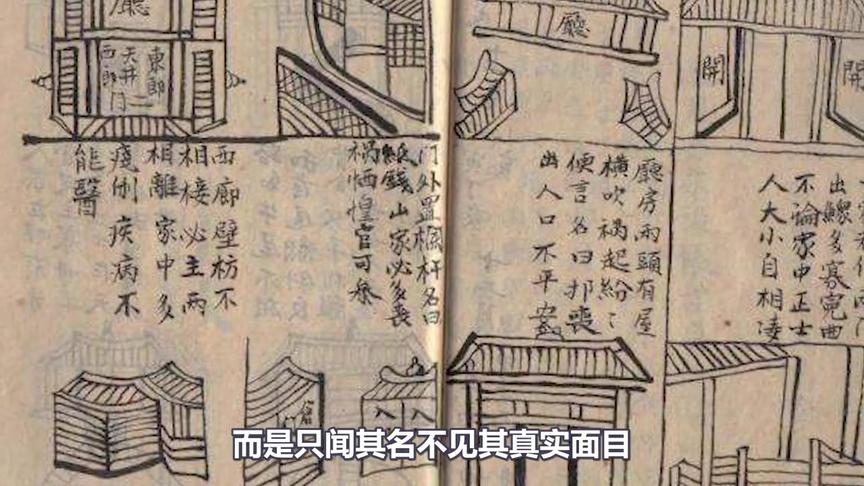 開
開
廳
不論家中正士
人大小自相凌
廳房兩頭有屋
橫吹禍起紛〻
便言名曰喪
出人口不平安
廳
東郎
天井
西郎
二門
門外置杆名曰
錢山家必多喪
禍恓惶官可參
西廊壁枋不
相接必主兩
相離家中多
疾病不
能醫
入
入
而是只闻其名不见其真实面目